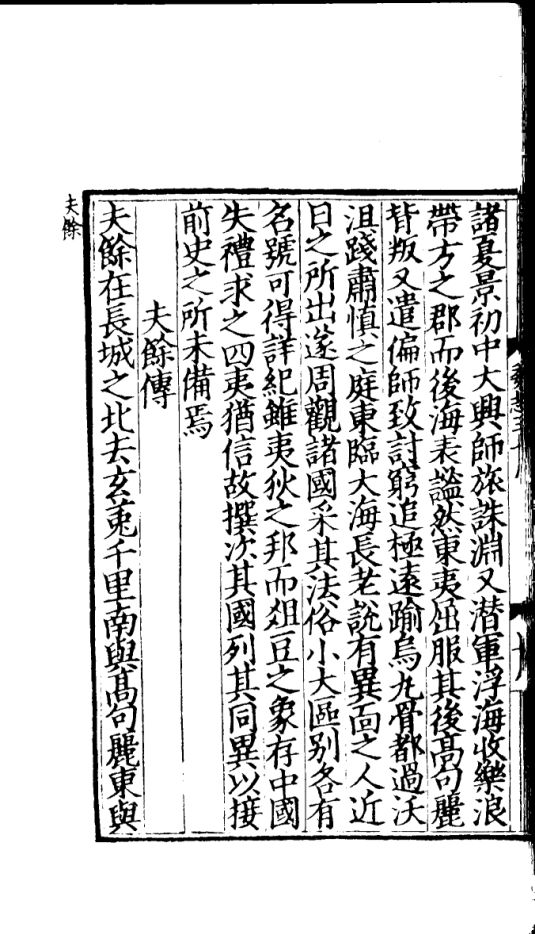 諸夏景初中大興師旅誅淵又潜軍浮海收樂浪
帶方之郡而後海表謐然東夷屈服其後髙句麗
背叛又遣偏師致討窮追極遠踰烏丸骨都過沃
沮踐肅慎之庭東臨大海長老說有異靣之人近
日之所出遂周觀諸國采其法俗小大區别各有
名號可得詳紀雖夷狄之邦而俎豆之象存中國
失禮求之四夷猶信故撰次其國列其同異以接
前史之所未備焉
夫餘傳
夫餘在長城之北去玄菟千里南與髙句麗東與
夫餘